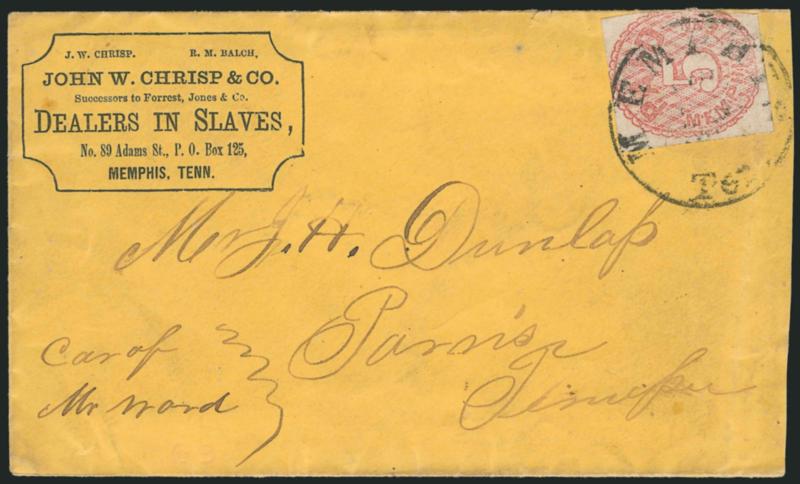 J. W. CHRISP. R. M. BALCH,
JOHN W. CHRISP & CO.
Successors to Forrest, Jones & Co.
DEALERS IN SLAVES,
No. 89 Adams St., P. O. Box 125,
MEMPHIS, TENN.
5
MEMPHIS
MEMPHIS
Mr J. H. Dunlap
Parris
Car of
Mr Word